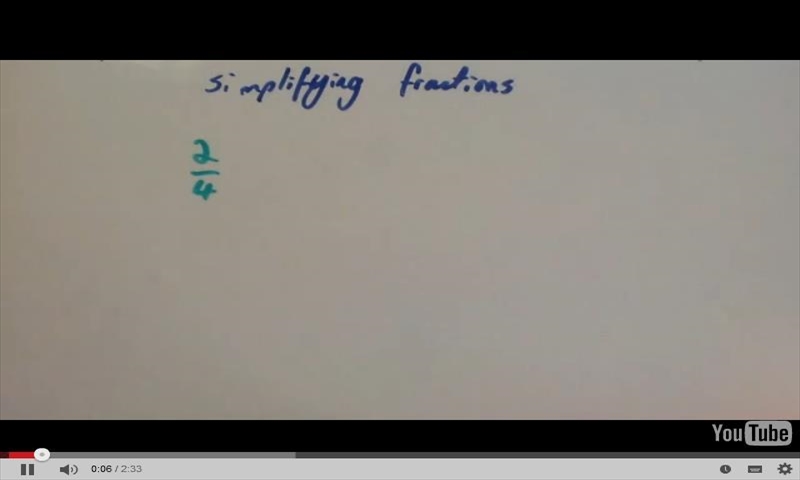 simplifying fractions
2
4
YouTube
0:06 / 2:33